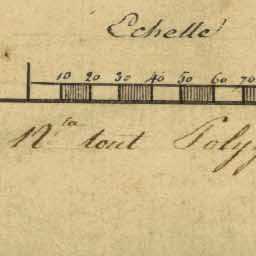 Echelle
10 20 30 40 50 60 70
N.ta tout Poly